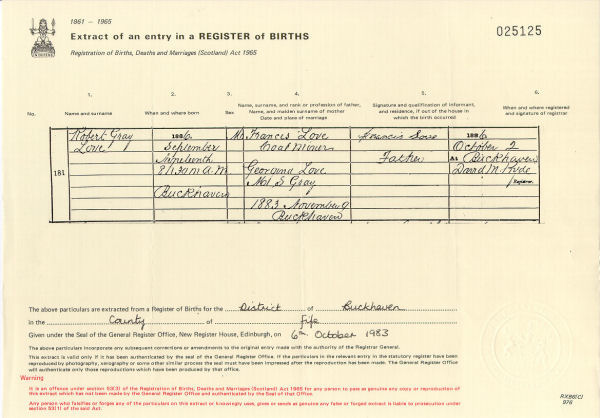 1861 – 1965
Extract of an entry in a REGISTER of BIRTHS
025125
Registration of Births, Deaths and Marriages (Scotland) Act 1965
1. 2. 3. 4. 5. 6.
No. Name and surname When and where born Sex Name, surname, and rank or profession of father, Name, and maiden surname of mother Date and place of marriage Signature and qualification of informant, and residence, if out of the house in which the birth occurred When and where registered and signature of registrar
Robert Gray 1886. M. Francis Love Francis Love 1886
Love September Coal Miner October 2
Father At Buckhaven
181 8h. 30m A.M. Georgina Love David M. Hyde
M.S Gray Registrar
Buckhaven
1883 November 9
Buckhaven
The above particulars are extracted from a Register of Births for the District of Buckhaven
in the County of Fife
Given under the Seal of the General Register Office, New Register House, Edinburgh, on 6th October 1983
The above particulars incorporate any subsequent corrections or amendments to the original entry made with the authority of the Registrar General.
This extract is valid only if it has been authenticated by the seal of the General Register Office. If the particulars in the relevant entry in the statutory register have been
reproduced by photography, xerography or some other similar process the seal must have been impressed after the reproduction has been made. The General Register Office
will authenticate only those reproductions which have been produced by that office.
Warning
It is an offence under section 53(3) of the Registration of Births, Deaths and Marriages (Scotland) Act 1965 for any person to pass as genuine any copy or reproduction of
this extract which has not been made by the General Register Office and authenticated by the Seal of that Office.
Any person who falsifies or forges any of the particulars on this extract or knowingly uses, gives or sends as genuine any false or forged extract is liable to prosecution under
section 53(1) of the said Act.
RXB6(C)
976